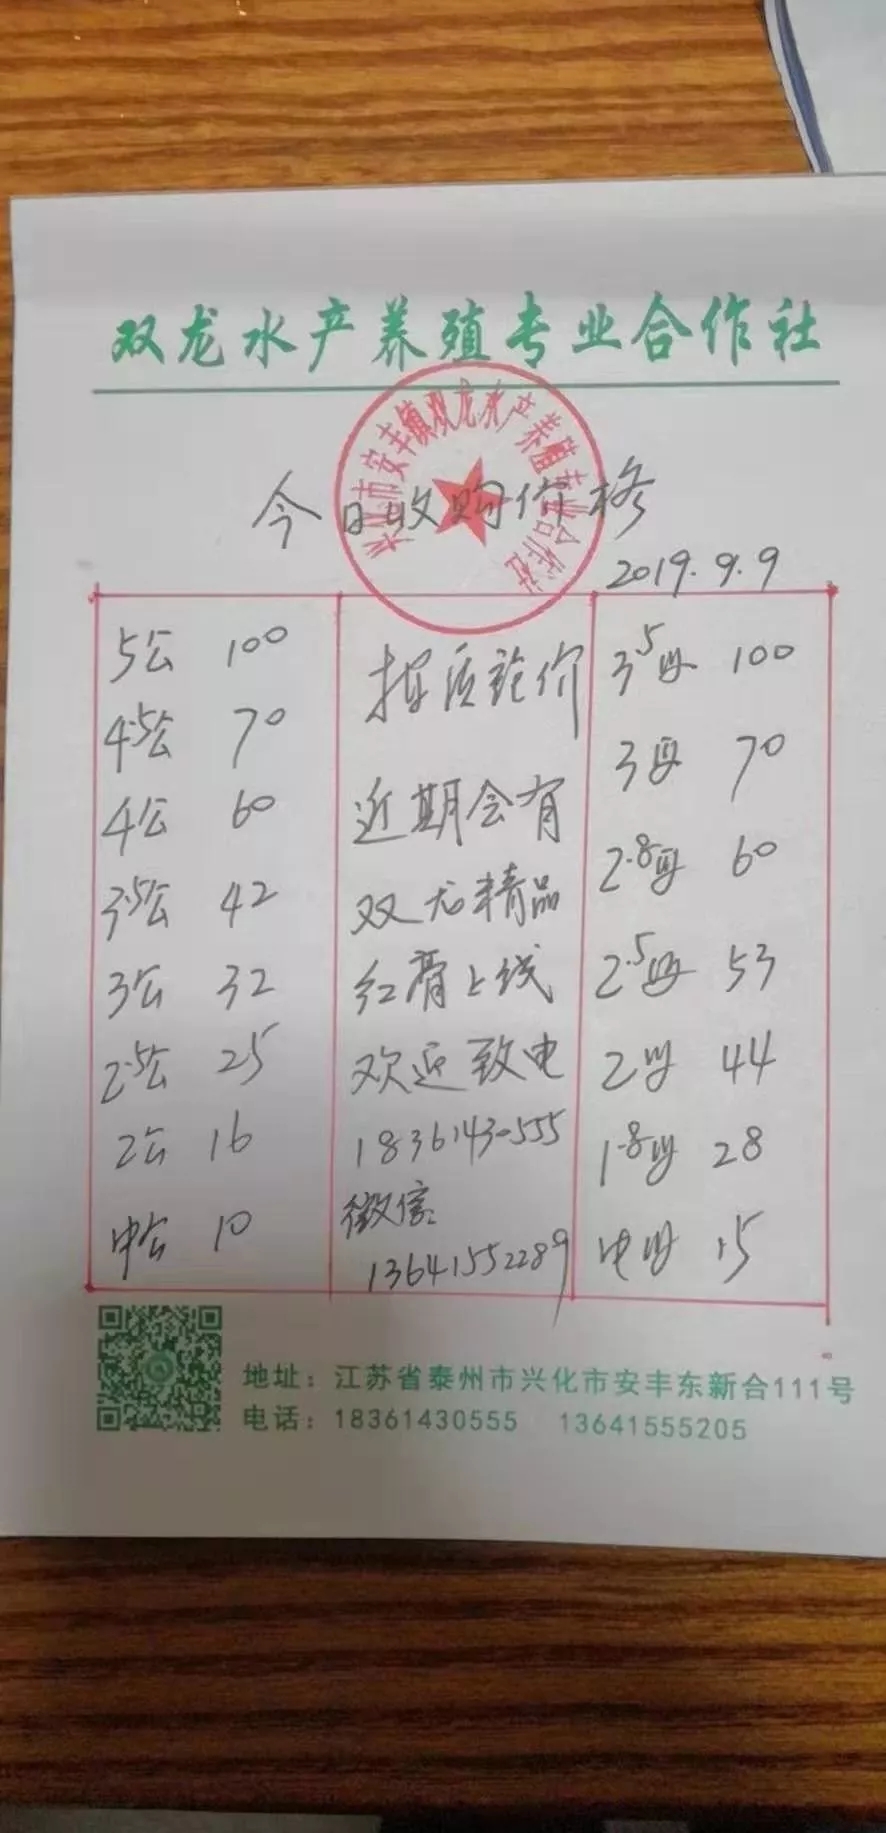 双龙水产养殖专业合作社
兴化市安丰镇双龙水产养殖专业合作社
今日收购价格
2019.9.9
5公 100
4.5公 70
4公 60
3.5公 42
3公 32
2.5公 25
2公 16
中公 10
按质论价
近期会有
双龙精品
红膏上线
欢迎致电
18361430555
微信:
13641552289
3.5母 100
3母 70
2.8母 60
2.5母 53
2母 44
1.8母 28
中母 15
地址：江苏省泰州市兴化市安丰东新合111号
电话：18361430555 13641555205